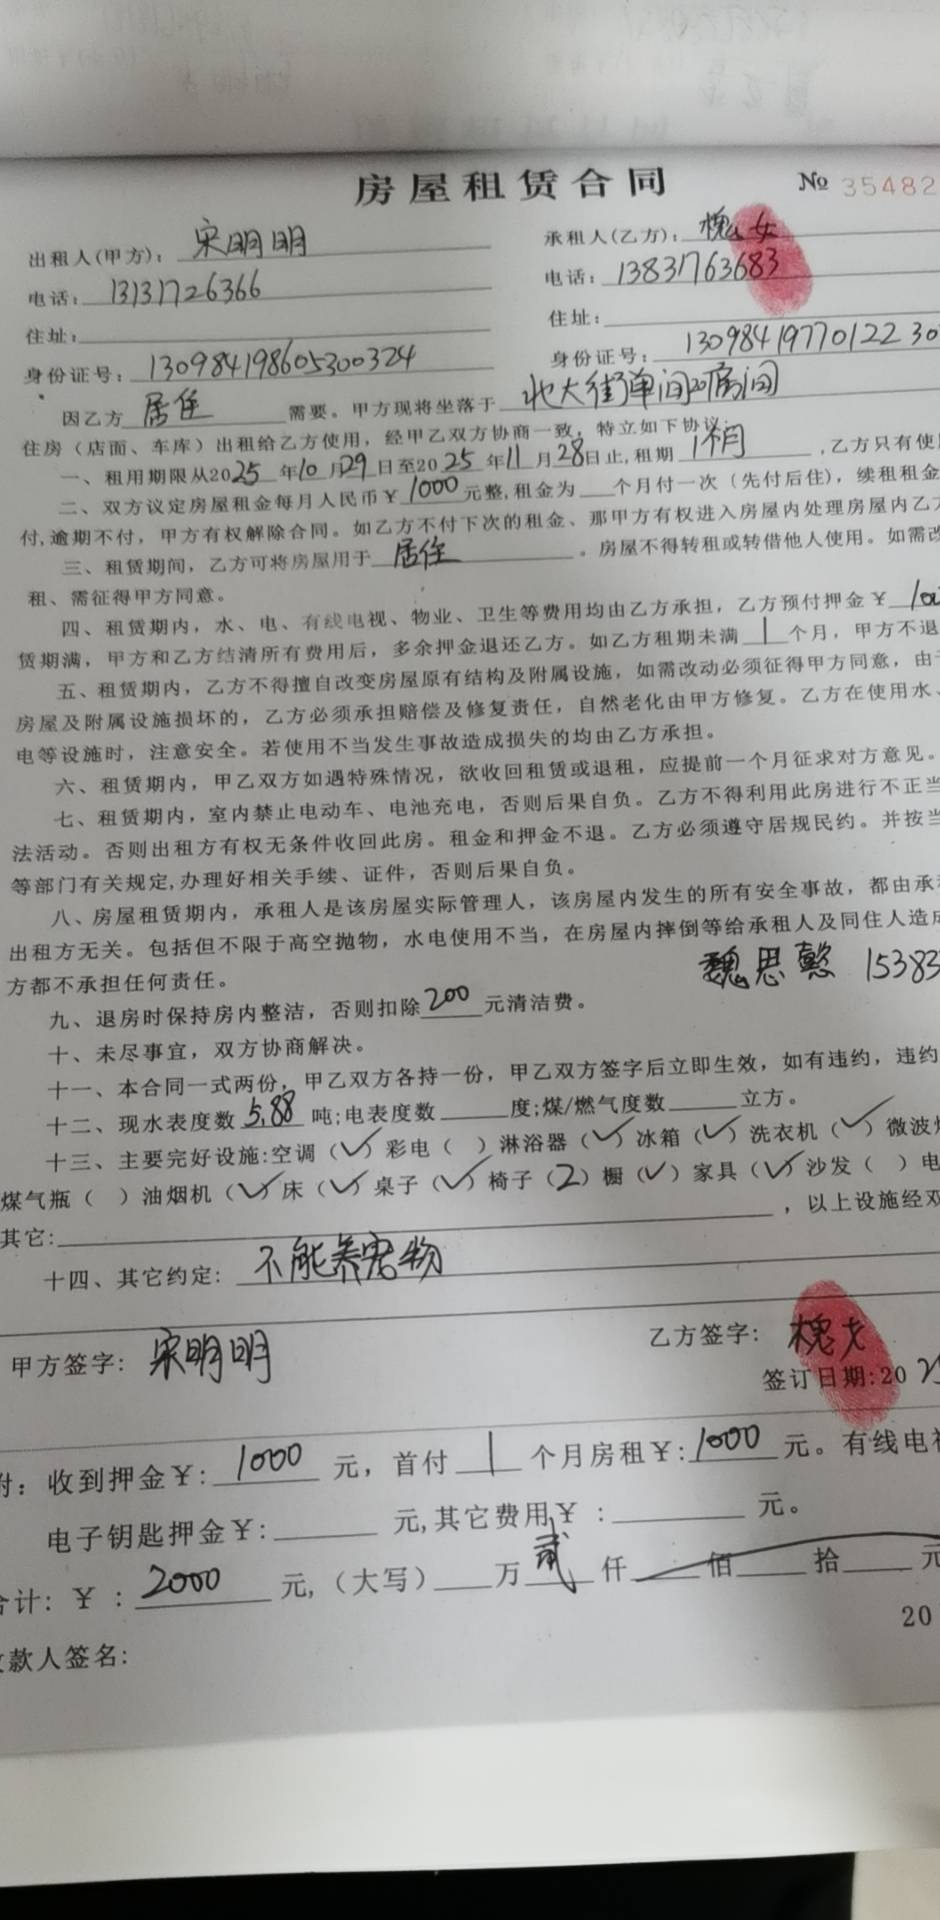 房屋租赁合同
№ 35482
出租人(甲方): 宋明明
承租人(乙方):
电话: 13131726366
电话: 13831763683
住址:
住址:
身份证号: 130984198605300324
身份证号: 13098419770122 30
因乙方 居住 需要。甲方现将坐落于 北大街单间20房间
住房（店面、车库）出租给乙方使用，经甲乙双方协商一致，特立如下协议
一、租用期限从2025年10月29日至2025年11月28日止,租期 1个月 ,乙方只有使
二、双方议定房屋租金每月人民币￥1000元整,租金为 个月付一次（先付后住），续租租金
付,逾期不付，甲方有权解除合同。如乙方不付下次的租金、那甲方有权进入房屋内处理房屋内乙
三、租赁期间，乙方可将房屋用于 居住 。房屋不得转租或转借他人使用。如需
租、需征得甲方同意。
四、租赁期内，水、电、有线电视、物业、卫生等费用均由乙方承担，乙方预付押金￥
赁期满，甲方和乙方结清所有费用后，多余押金退还乙方。如乙方租期未满 1 个月，甲方不退
五、租赁期内，乙方不得擅自改变房屋原有结构及附属设施，如需改动必须征得甲方同意，由
房屋及附属设施损坏的，乙方必须承担赔偿及修复责任，自然老化由甲方修复。乙方在使用水、
电等设施时，注意安全。若使用不当发生事故造成损失的均由乙方承担。
六、租赁期内，甲乙双方如遇特殊情况，欲收回租赁或退租，应提前一个月征求对方意见。
七、租赁期内，室内禁止电动车、电池充电，否则后果自负。乙方不得利用此房进行不正当
法活动。否则出租方有权无条件收回此房。租金和押金不退。乙方必须遵守居规民约。并按当
等部门有关规定,办理好相关手续、证件，否则后果自负。
八、房屋租赁期内，承租人是该房屋实际管理人，该房屋内发生的所有安全事故，都由承
出租方无关。包括但不限于高空抛物，水电使用不当，在房屋内摔倒等给承租人及同住人造成
方都不承担任何责任。
魏思 15383
九、退房时保持房内整洁，否则扣除200元清洁费。
十、未尽事宜，双方协商解决。
十一、本合同一式两份，甲乙双方各持一份，甲乙双方签字后立即生效，如有违约，违约
十二、现水表度数5.88吨;电表度数 度;煤/燃气度数 立方。
十三、主要完好设施:空调（✓）彩电（ ）淋浴器（✓）冰箱（✓）洗衣机（✓）微波
煤气瓶（ ）油烟机（✓）床（✓）桌子（✓）椅子（2）橱（✓）家具（✓）沙发（ ）电
其它: ，以上设施经双
十四、其它约定: 不能养宠物
甲方签字: 宋明明
乙方签字:
签订日期:20
附：收到押金￥: 1000 元，首付 1 个月房租￥:1000 元。有线电
电子钥匙押金￥: 元,其它费用￥ : 元。
合计: ￥ : 2000 元,（大写） 万 贰 仟 佰 拾 元
20
收款人签名: